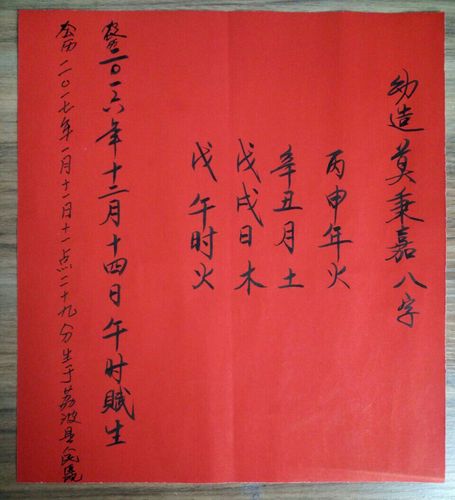 幼造莫秉嘉八字
丙申年火
辛丑月土
戊戌日木
戊午时火
农历二〇一六年十二月十四日午时赋生
公历二〇一七年一月十一日十一点二十九分生于荔波县